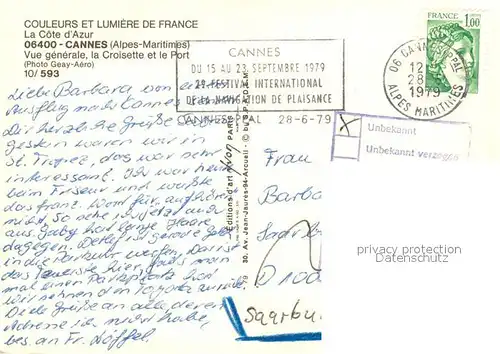 COULEURS ET LUMIÈRE DE FRANCE
La Côte d'Azur
06400 - CANNES (Alpes-Maritimes)
Vue générale, la Croisette et le Port
(Photo Geay-Aéro)
10/593
Liebe Barbara von einem
Ausflug nach Cannes
Dir herzliche Grüße
gestern waren wir in
St. Tropez, das war sehr
interessant. Ich war heute
beim Friseur und wußte
das franz. Wort für aufhören
nicht. So sehe ich jetzt auch
aus. Gaby hat lange Haare
dagegen.
in die Parkuhr werfen. Das ist
das Teuerste hier, falls man
mal einen Parkplatz hat
wir nehmen den
Viele Grüße an alle, deren
Adresse ich nicht habe,
bes. an Fr. Löffel.
CANNES
DU 15 AU 23 SEPTEMBRE 1979
2e FESTIVAL INTERNATIONAL
DE LA NAVIGATION DE PLAISANCE
CANNES PPAL 28-6-79
FRANCE
1,00
06 CANNES PPAL
12
28-6
1979
ALPES MARITIMES
Unbekannt
Unbekannt verzogen
Editions d'art yvon PARIS
30, Av. Jean-Jaurès-94-Arcueil
Frau
Barba
Saarbr
D 100
Saarbu
privacy protection
Datenschutz